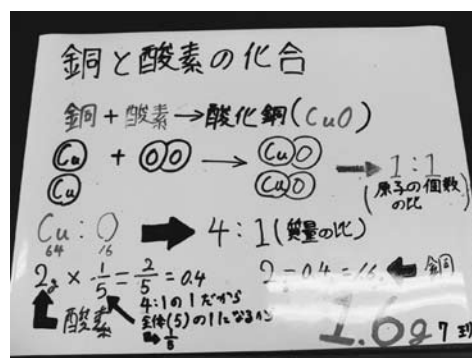 銅と酸素の化合
銅+酸素→酸化銅(CuO)
Cu + OO → CuO → 1:1
Cu CuO (原子の個数の比)
Cu:O → 4:1(質量の比)
64 16
2g × 1/5 = 2/5 = 0.4
2-0.4=1.6 ← 銅
酸素
4:1の1だから
全体(5)の1になるから
→ 1/5
1.6g 7班